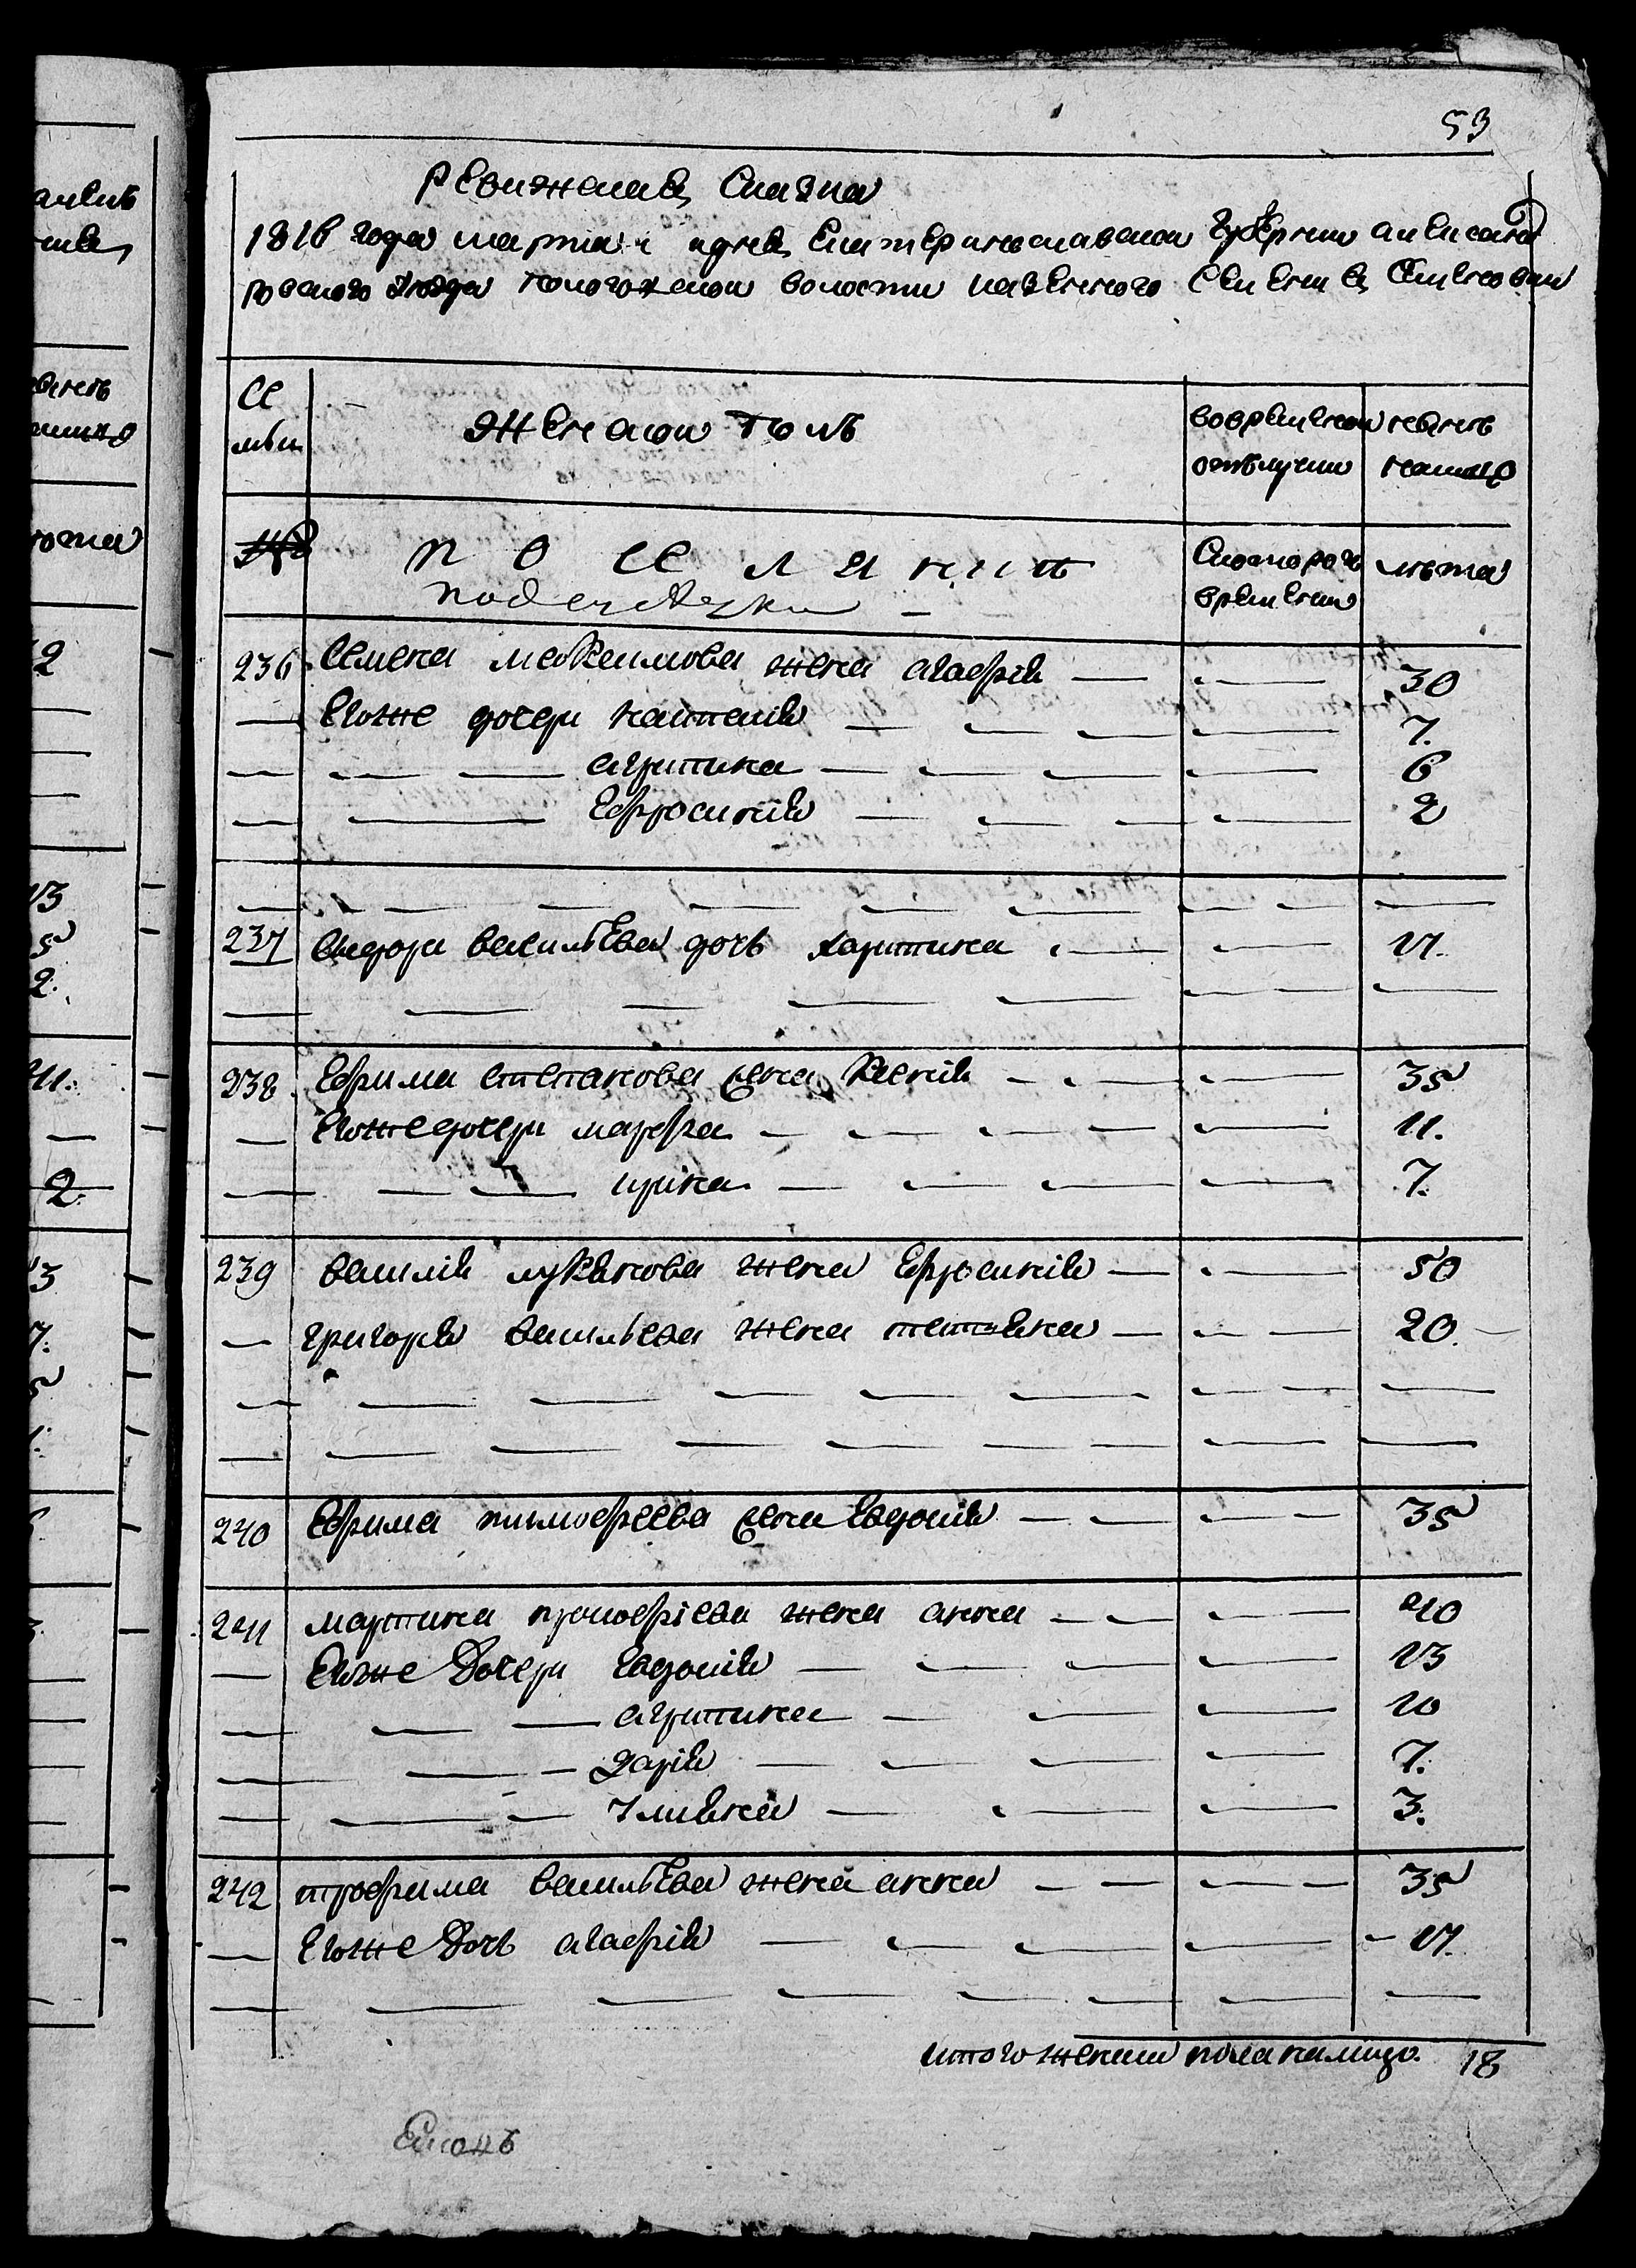 53
Ревижская Сказка
1816 года марта дня Екатеринославской Губернии александ
ровского уезда пологожской волости казенного Селения Семеновки
Се
мьи
женской полъ
во временной
отлучки
ныне
на лицо
№
П о се л я н и нъ
Подсуседки
Скоторого
времени
лѣта
236 Семена максимова жена агафія 30
Егоже дочери наталія 7.
агрипина 6
Ефросинія 2
237 Сидора васильева дочь харитина 17.
238 Ефима степанова жена Ксенія 35
Егоже дочери марфа 11.
ирина 7.
239 василія лукянова жена Ефросинія 50
григорія васильева жена татьяна 20.
240 Ефима тимофеева жена Евдокія 35
241 мартина прокофіева жена анна 40
Егоже Дочери Евдокія 13
агрипина 10
Дарія 7.
Ульяна 3.
242 трофима васильева жена анна 35
Егоже Дочь агафія 17.
итого женска пола налицо. 18